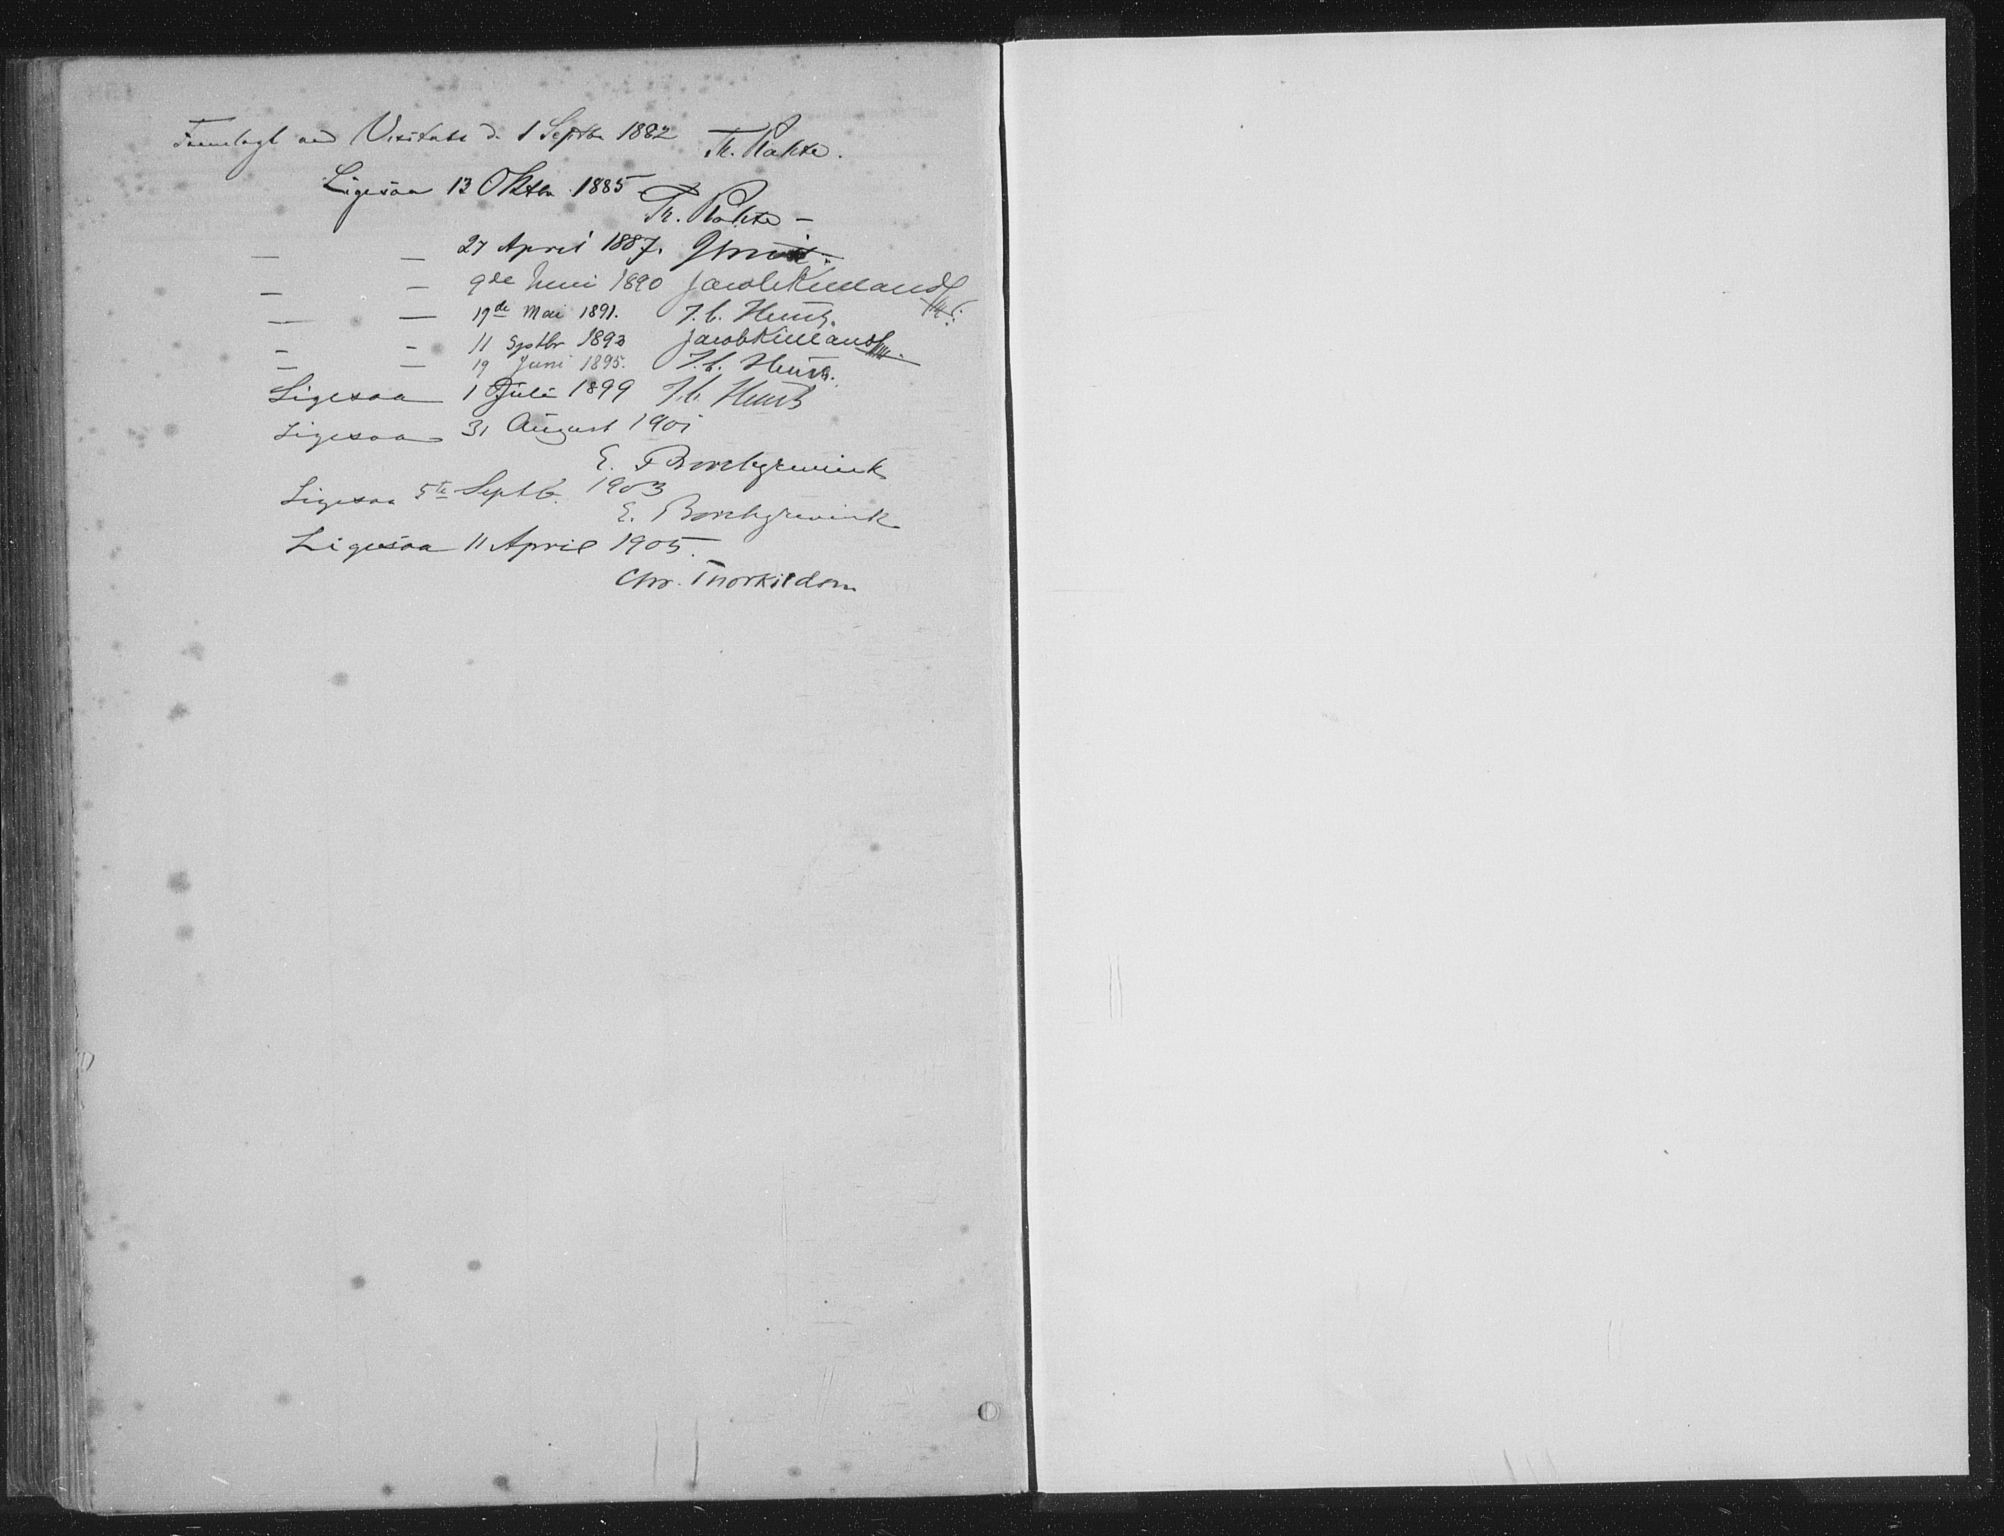 Fremlagt ved Visitats d. 1 Septbr 1882 Th. Rakke.
Ligesaa 13 Oktbr. 1885
Th. Rakke –
— — 27 April 1887.
— — 9de Juni 1890 Jacob Kielland
— — 19de Mai 1891. J. C. Heuch.
— — 11 Septbr 1893 Jacob Kielland
— — 19 Juni 1895. J. C. Heuch.
Ligesaa 1 Juli 1899 J. C. Heuch
Ligesaa 31 August 1901
E. F Borchgrevink
Ligesaa 5te Septb. 1903
E. Borchgrevink
Ligesaa 11 April 1905.
Chr. Thorkildsen